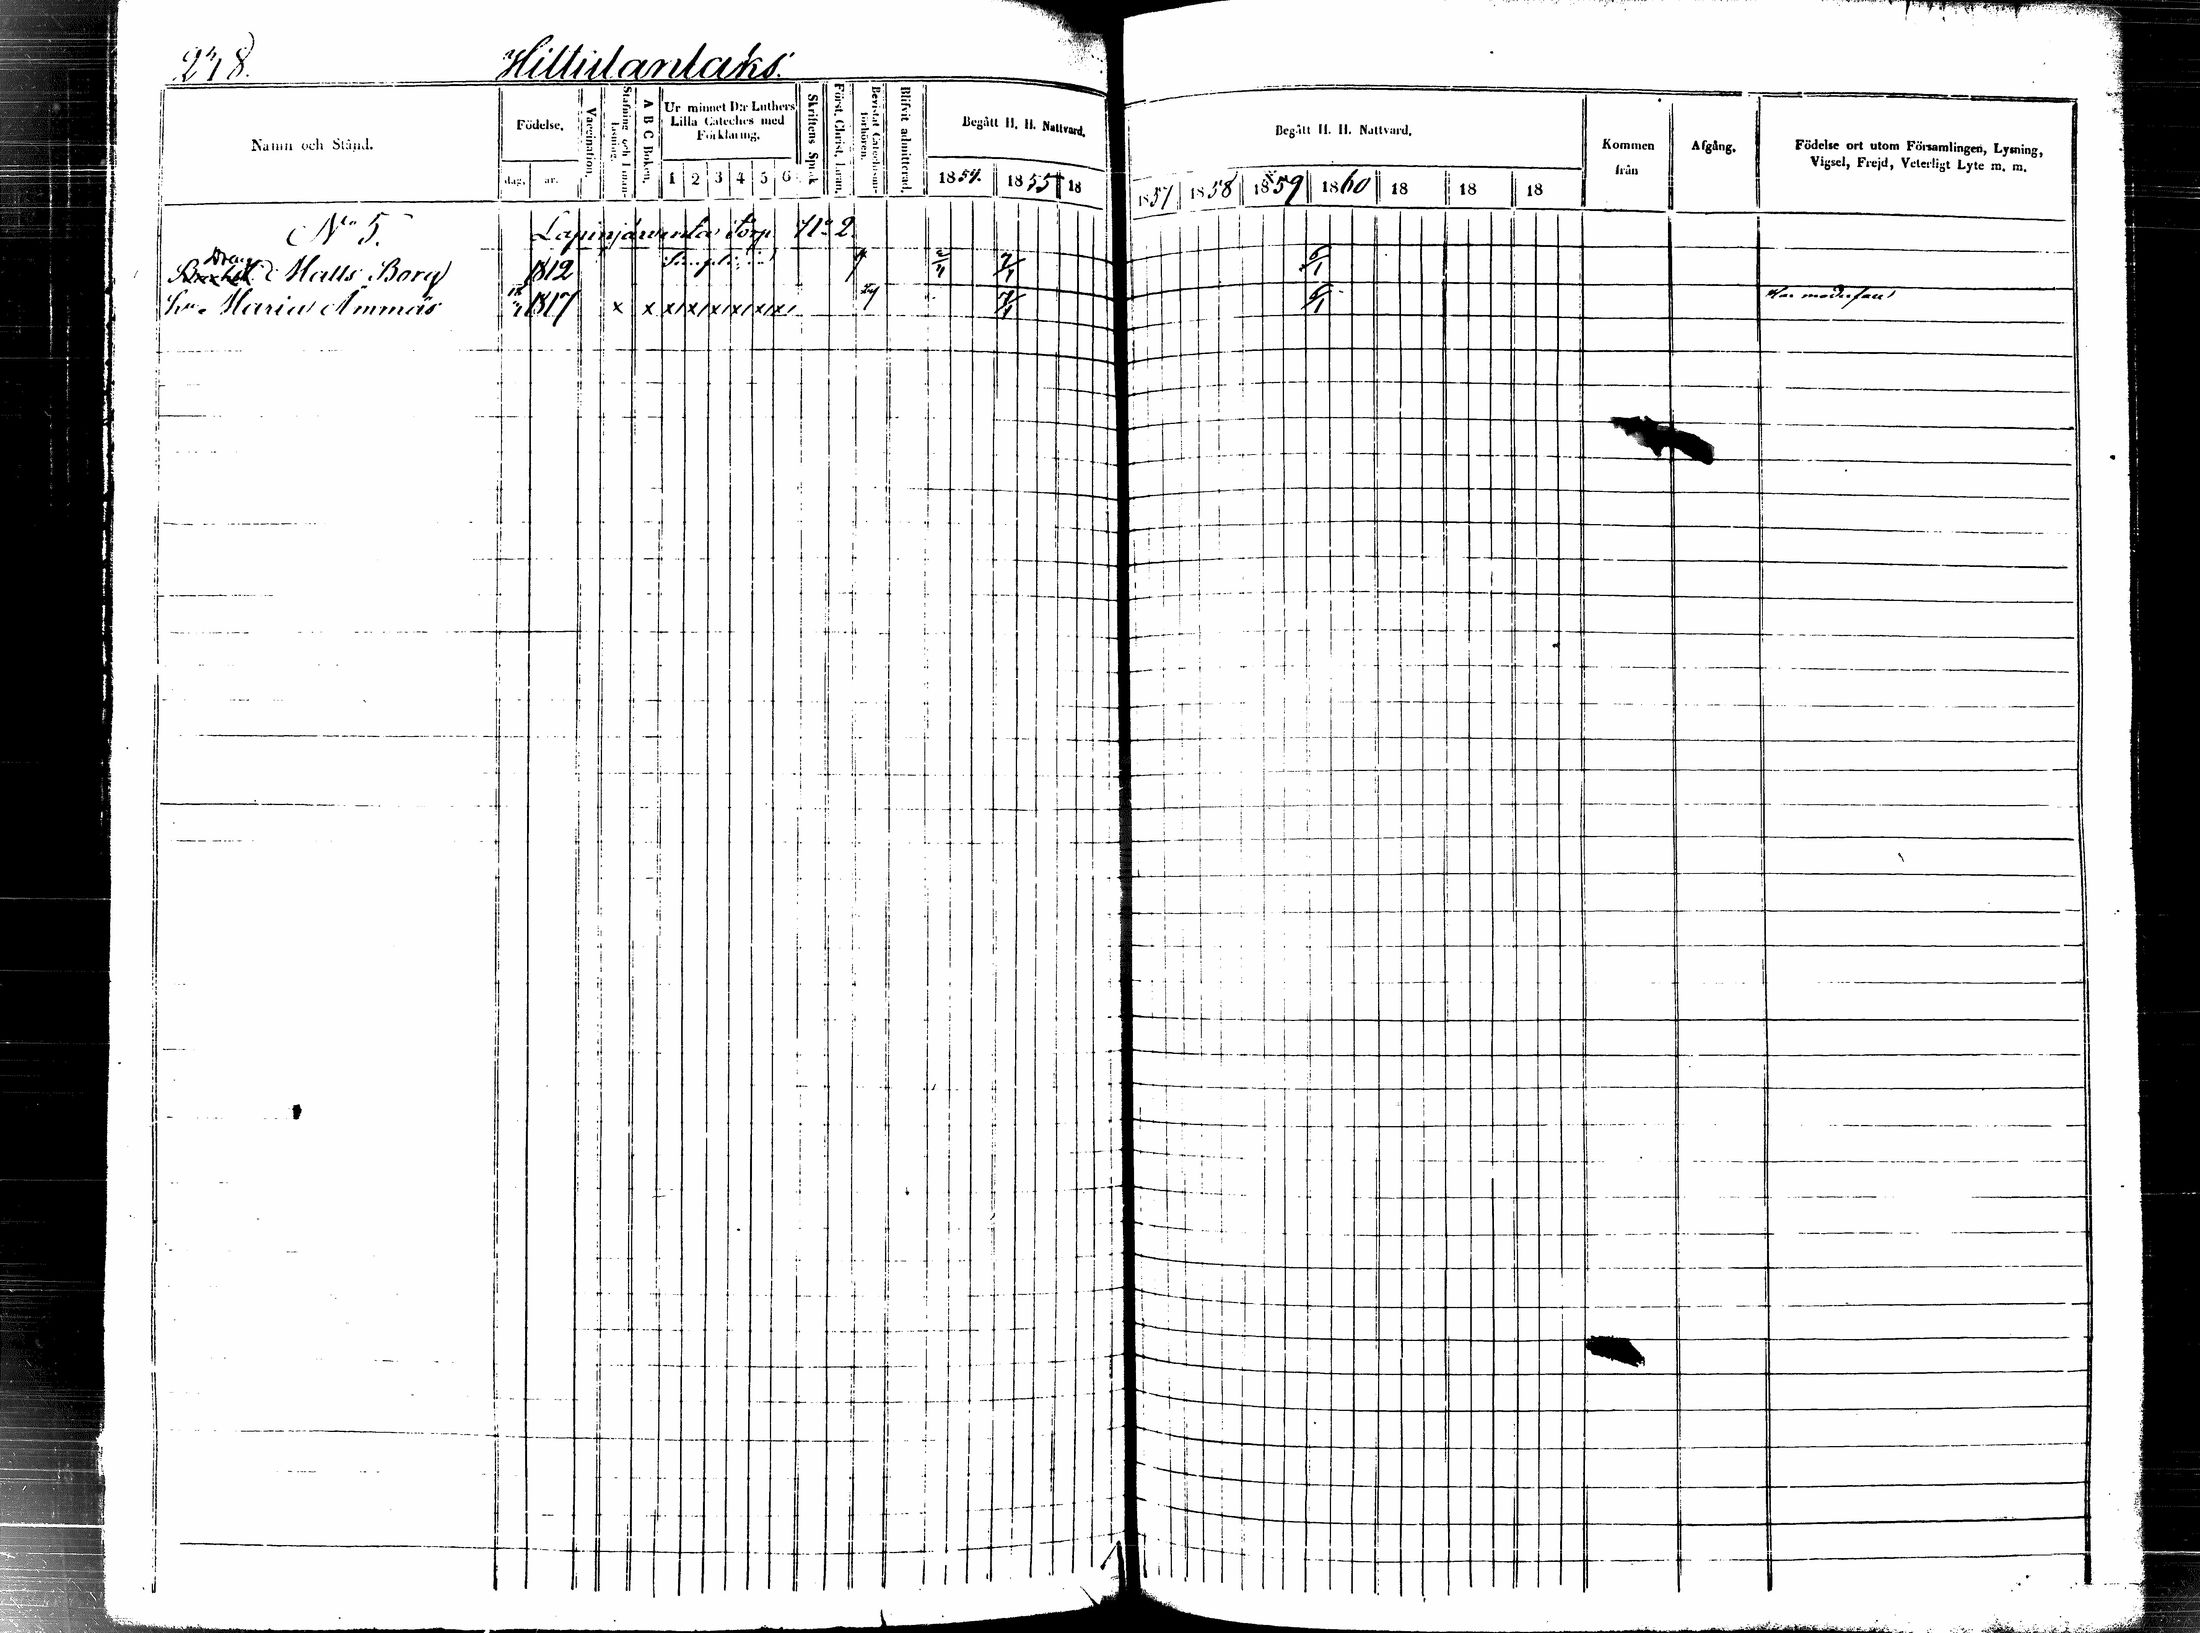 248. Hiltislantaks.
Namn och Stånd.
Födelse.
dag. år.
Vaccination.
Stafning och Innanläsning.
A B C Boken.
Ur minnet D:r Luthers Lilla Cateches med Förklaring.
1 2 3 4 5 6
Skriftens Språk
Först. Christ. Läran.
Bevistat Catechismiförhören.
Blifvit admitterad.
Begått H. H. Nattvard.
1854. 1855 18
Begått H. H. Nattvard.
1857 1858 1859 1860 18 18 18
Kommen från
Afgång.
Födelse ort utom Församlingen, Lysning, Vigsel, Frejd, Veterligt Lyte m. m.
No 5. Lapinjärvenla torp No 2.
Dräng
Matts Borg 1812 7/4 6/1
hu. Maria Ämmäs 1817 x x x/x/x/x/x/x/ 7/4 6/1